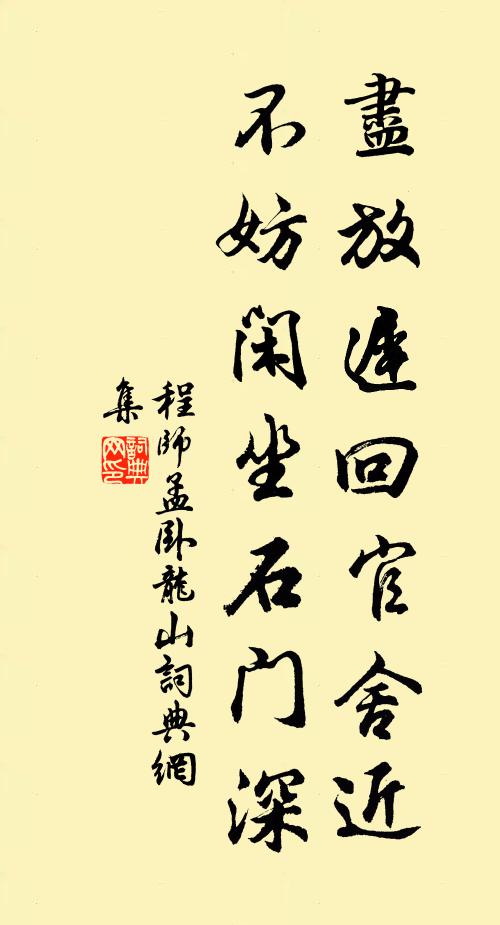 盡放遲回官舍近
不妨閑坐石門深
程師孟臥龍山詞典網
集
詞典網印